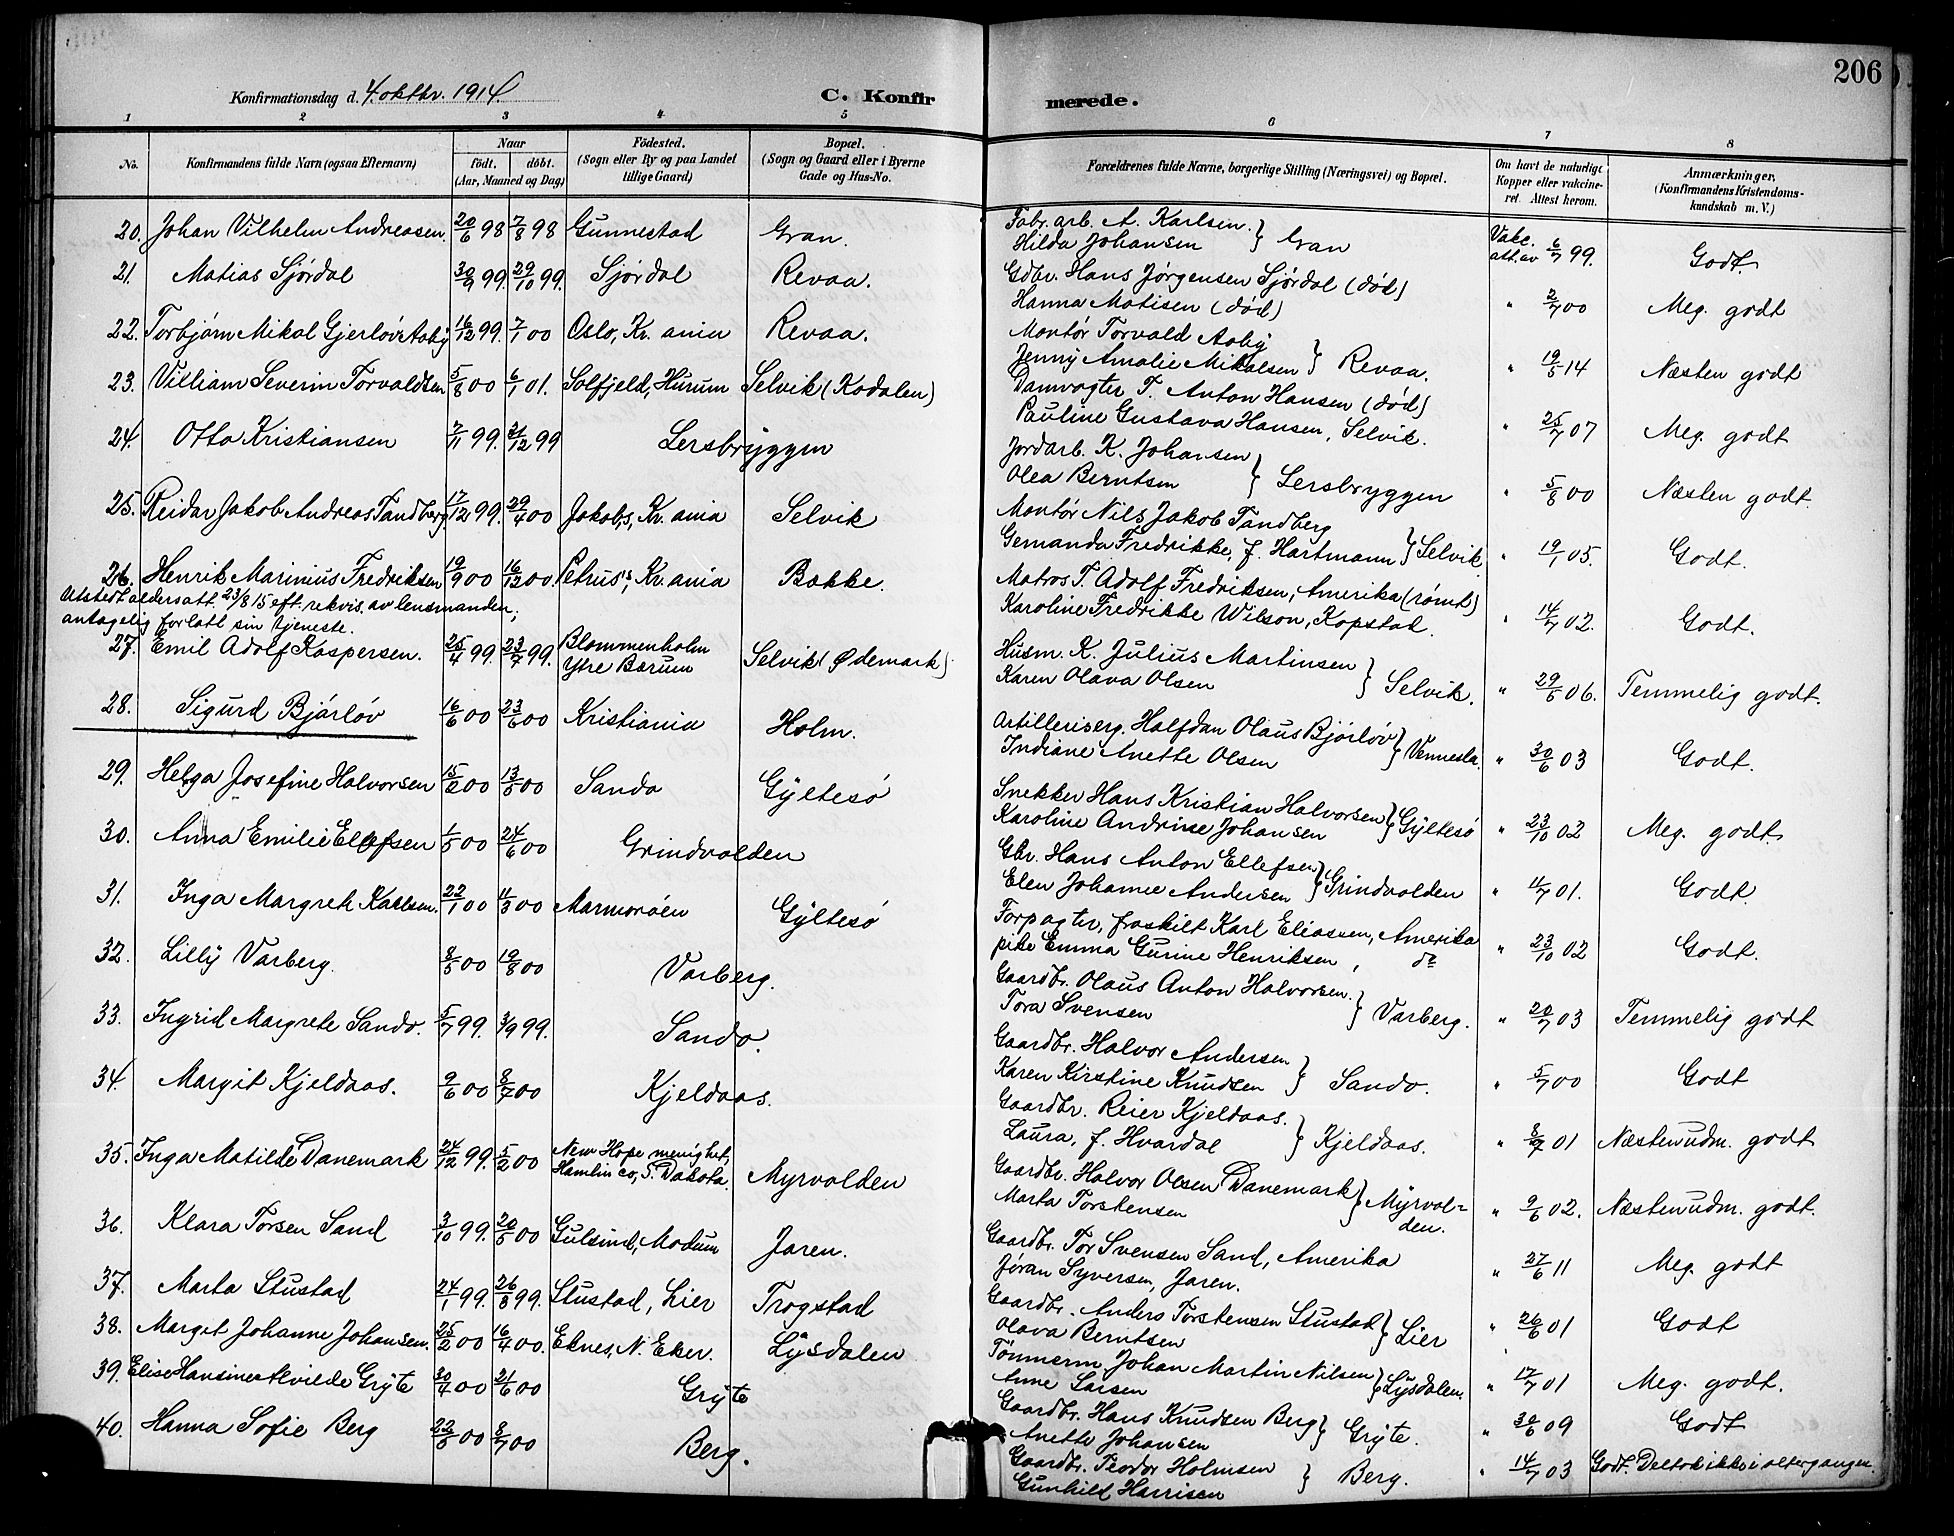 206
Konfirmationsdag d. 4. oktbr. 1914.
C. Konfirmerede.
1 2 3 4 5 6 7 8
No. Konfirmandens fulde Navn (ogsaa Efternavn) Naar födt. döbt. (Aar, Maaned og Dag) Födested. (Sogn eller By og paa Landet tillige Gaard) Bopæl. (Sogn og Gaard eller i Byerne Gade og Hus-No. Forældrenes fulde Navne, borgerlige Stilling (Næringsvei) og Bopæl. Om havt de naturlige Kopper eller vakcineret. Attest herom. Anmærkninger. (Konfirmandens Kristendomskundskab m. V.)
20. Johan Vilhelm Andreassen. 20/6 98 7/8 98 Gunnestad Gran. Fabr. arb. A. Karlsen. Hilda Johansen } Gran Vakc. att. av 6/7 99. Godt.
21. Matias Sjørdal 30/9 99. 29/10 99. Sjørdal Revaa. Gdbr. Hans Jørgensen Sjørdal (død) Hanna Matisen (død) " 2/7 00 Meg. godt
22. Torbjørn Mikal Gjerløv Aaby 16/12 99. 7/1 00 Oslo, Kr.ania Revaa. Montør Torvald Aaby Jenny Amalie Mikalsen } Revaa. " 19/5 14 Næsten godt
23. Villiam Severin Torvaldsen 5/8 00 6/1 01. Solfjeld, Hurum Selvik (Kodalen) Damvogter T. Anton Hansen (død) Pauline Gustava Hansen, Selvik. " 25/7 07 Meg. godt
24. Otto Kristiansen 7/11 99. 31/12 99 Lersbryggen Jordarb. K. Johansen Olea Berntsen } Lersbryggen " 5/8 00 Næsten godt.
25. Reidar Jakob Andreas Tandberg 17/12 99. 29/4 00 Jakob,s, Kr.ania Selvik Montør Nils Jakob Tandberg Gemanda Fredrikke, f. Hartmann } Selvik " 19/1 05. Godt.
26. Henrik Marinius Fredriksen 19/9 00 16/12 00. Petrus', Kr.ania Bakke. Matros T. Adolf Fredriksen, Amerika (rømt) Karoline Fredrikke Wilson, Kopstad. " 14/7 02. Godt.
Utstedt aldersatt. 23/8 15 eft. rekvis. av lensmanden,
antagelig forlatt sin tjeneste.
27. Emil Adolf Kaspersen. 25/4 99. 23/7 99. Blommenholm Ytre Bærum Selvik (Ødemark). Husm. K. Julius Martinsen Karen Olava Olsen } Selvik. " 29/6 06. Temmelig godt.
28. Sigurd Bjørløv 16/6 00 23/6 00 Kristiania Holm. Artilleriserg. Halfdan Olaus Bjørløv Indiane Anette Olsen } Vennesla. " 30/6 03 Godt.
29. Helga Josefine Halvorsen 15/2 00 13/5 00 Sando Gyltesø Snekker Hans Kristian Halvorsen Karoline Andrine Johansen } Gyltesø " 23/10 02 Meg. godt.
30. Anna Emilie Ellefsen 1/5 00 24/6 00 Grindvolden Gbr. Hans Anton Ellefsen Elen Johanne Andersen } Grindvolden " 4/7 01. Godt.
31. Inga Margreth Karlsen. 22/1 00 11/3 00 Marmorøen Gyltesø Forpagter, fraskilt Karl Eliassen, Amerika pike Emma Gurine Henriksen, do " 23/10 02 Godt.
32. Lilly Varberg. 8/5 00 19/8 00 Varberg. Gaardbr. Olaus Anton Halvorsen. Tora Svensen } Varberg. " 20/7 03 Temmelig godt
33. Ingrid Margrete Sando. 5/7 99. 3/9 99. Sando. Gaardbr. Halvor Andersen Karen Kirstine Knudsen } Sando. " 5/7 00 Godt
34. Margit Kjeldaas. 9/6 00 8/7 00 Kjeldaas. Gaardbr. Reier Kjeldaas. Laura, f. Hvardal } Kjeldaas. " 8/7 01 Næsten udm. godt
35. Inga Matilde Danemark 24/12 99. 5/2 00 New Hope menighet, Hamlin co, S. Dakota. Myrvolden Gaardbr. Halvor Olsen Danemark Marta Torstensen } Myrvolden. " 9/6 02. Næsten udm. godt.
36. Klara Torsen Sand 3/10 99. 20/5 00 Gulsind, Modum Jaren. Gaardbr. Tor Svensen Sand, Amerika Jøran Syversen, Jaren. " 27/6 11 Meg. godt
37. Marta Stustad 24/1 99. 26/3 99. Stustad, Lier Trogstad Gaardbr. Anders Torstensen Stustad Olava Berntsen } Lier " 26/6 01 Godt
38. Margit Johanne Johansen. 25/2 00 16/4 00. Eknes, N. Eker. Lysdalen Tømmerm. Johan Martin Nilsen Anne Larsen } Lysdalen. " 17/7 01 Meg. godt.
39. Elise Hansine Alvilde Gryte 30/4 00 21/6 00 Gryte Gaardbr. Hans Knudsen Berg Anette Johansen } Gryte. " 30/6 09 Godt
40. Hanna Sofie Berg 22/5 00 8/7 00 Berg. Gaardbr. Teodor Holmsen Gunhild Harrisen } Berg. " 14/7 03 Godt. Deltok ikke i altergangen.